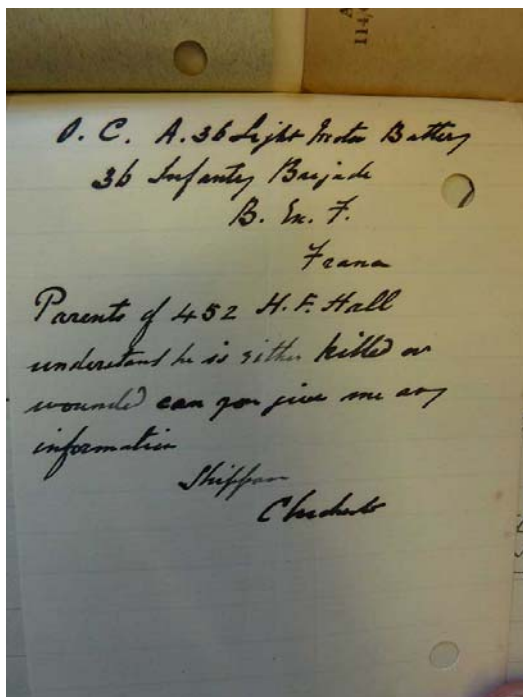 114,
O. C. A. 36 Light Motor Battery
36 Infantry Brigade
B. Ex. F.
France
Parents of 452 H. F. Hall
understand he is either killed or
wounded can you give me any
information
Chichester